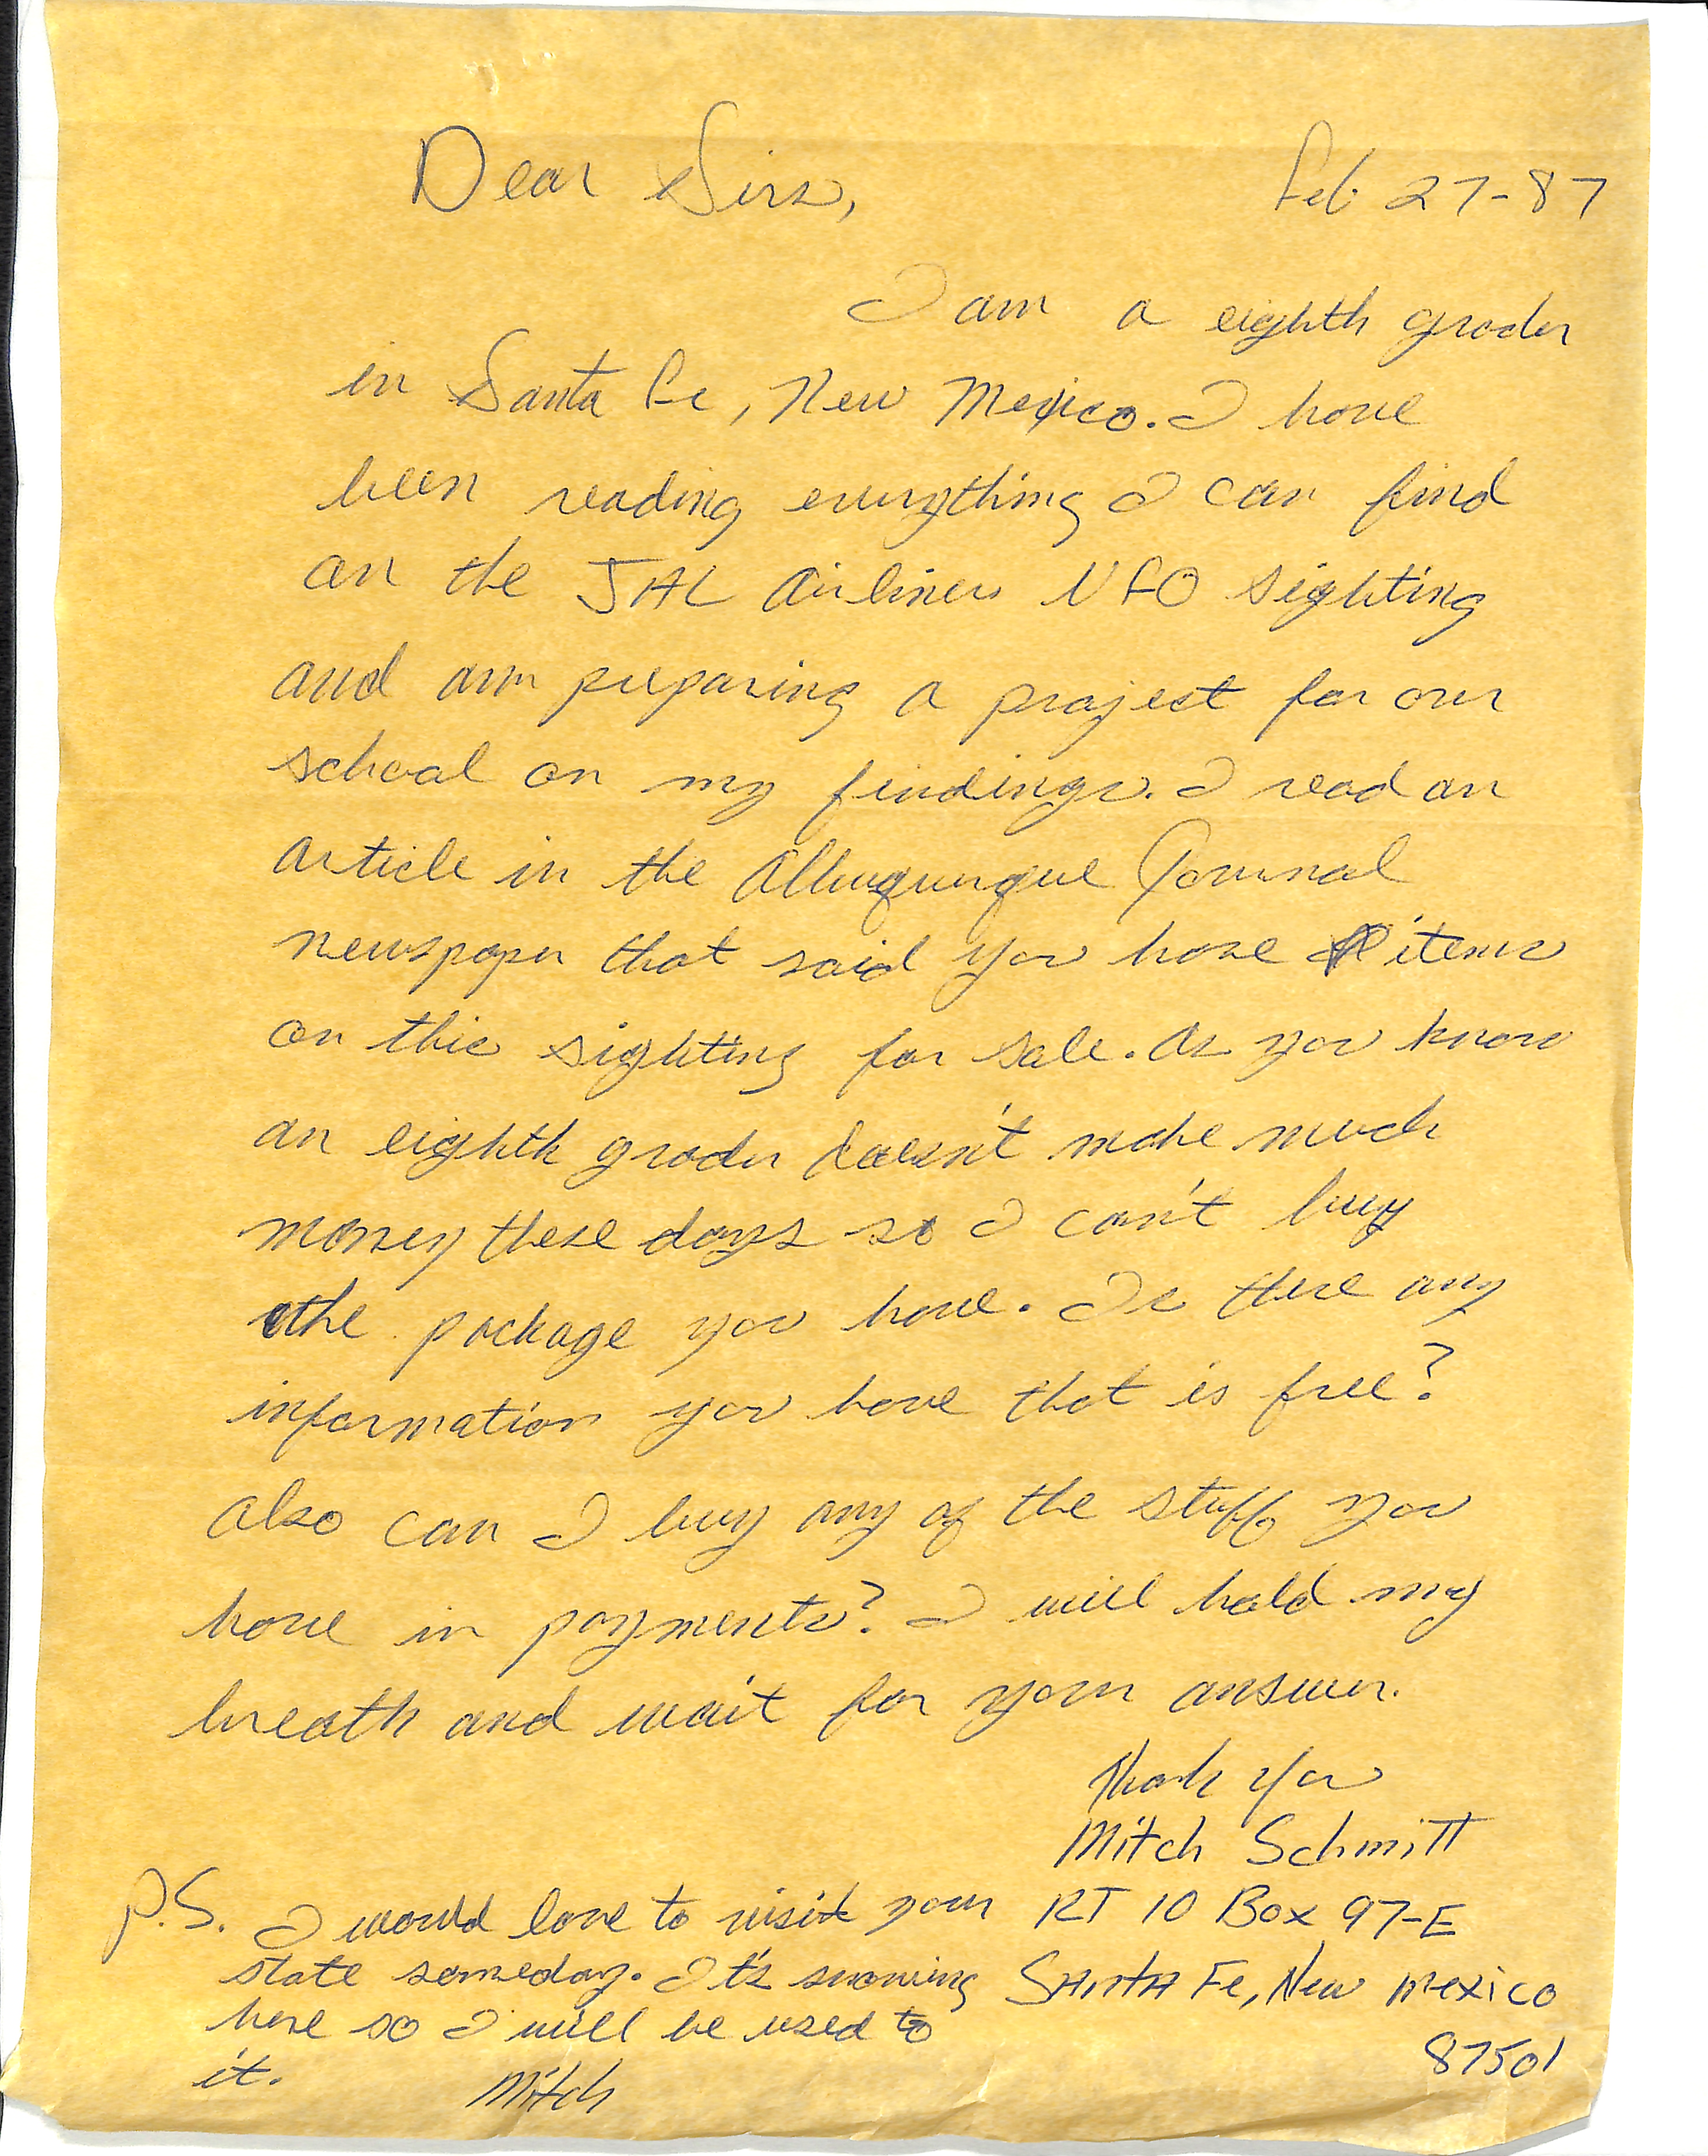 Dear Sirs, Feb 27-87
I am a eighth grader
in Santa Fe, New Mexico. I have
been reading everything I can find
on the JAL Airliners UFO sighting
and am preparing a project for our
school on my findings. I read an
article in the Albuquerque Journal
newspaper that said you have items
on this sighting for sale. As you know
an eighth grader doesn't make much
money these days so I can't buy
the package you have. Is there any
information you have that is free?
Also can I buy any of the stuff you
have in payments? I will hold my
breath and wait for your answer.
Thank You
Mitch Schmitt
RT 10 Box 97-E
Santa Fe, New Mexico
87501
P.S. I would love to visit your
state someday. It's snowing
here so I will be used to
it. Mitch